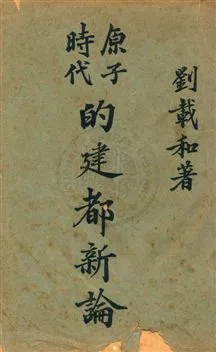 劉載和著
原子
時代
的建都新論